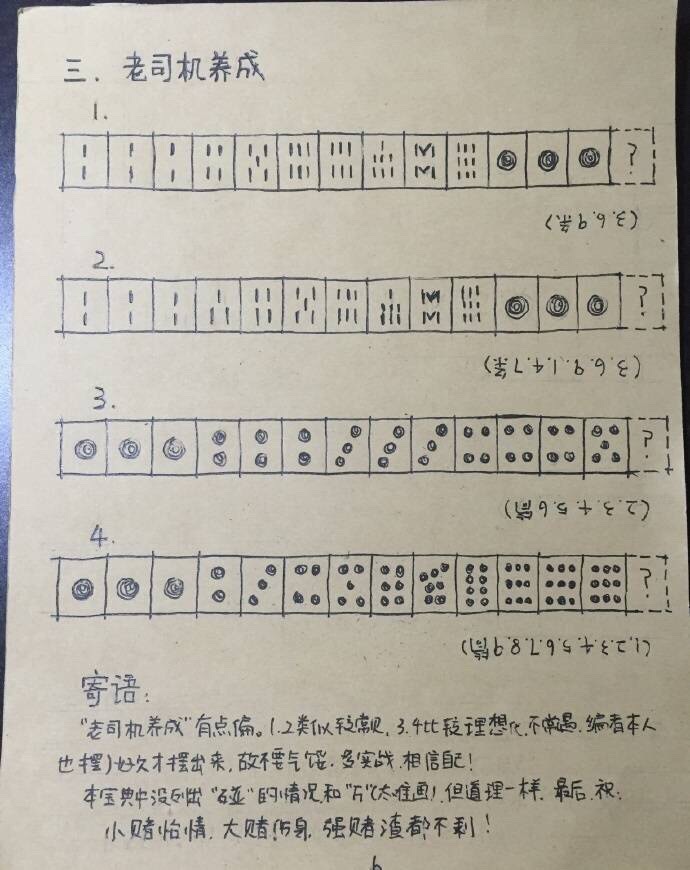 三. 老司机养成
1.
?
(3.6.9条)
2.
?
(3.6.9.1.4.7条)
3.
?
(2.3.4.5.6筒)
4.
?
(1.2.3.4.5.6.7.8.9筒)
寄语:
"老司机养成"有点偏。1.2类似较常见, 3.4比较理想化,不常遇.编者本人
也摆了好久才摆出来,故不要气馁.多实战.相信自己!
本宝典中没列出"碰"的情况和"万"(太难画),但道理一样.最后.祝:
小赌怡情.大赌伤身,强赌渣都不剩!
6